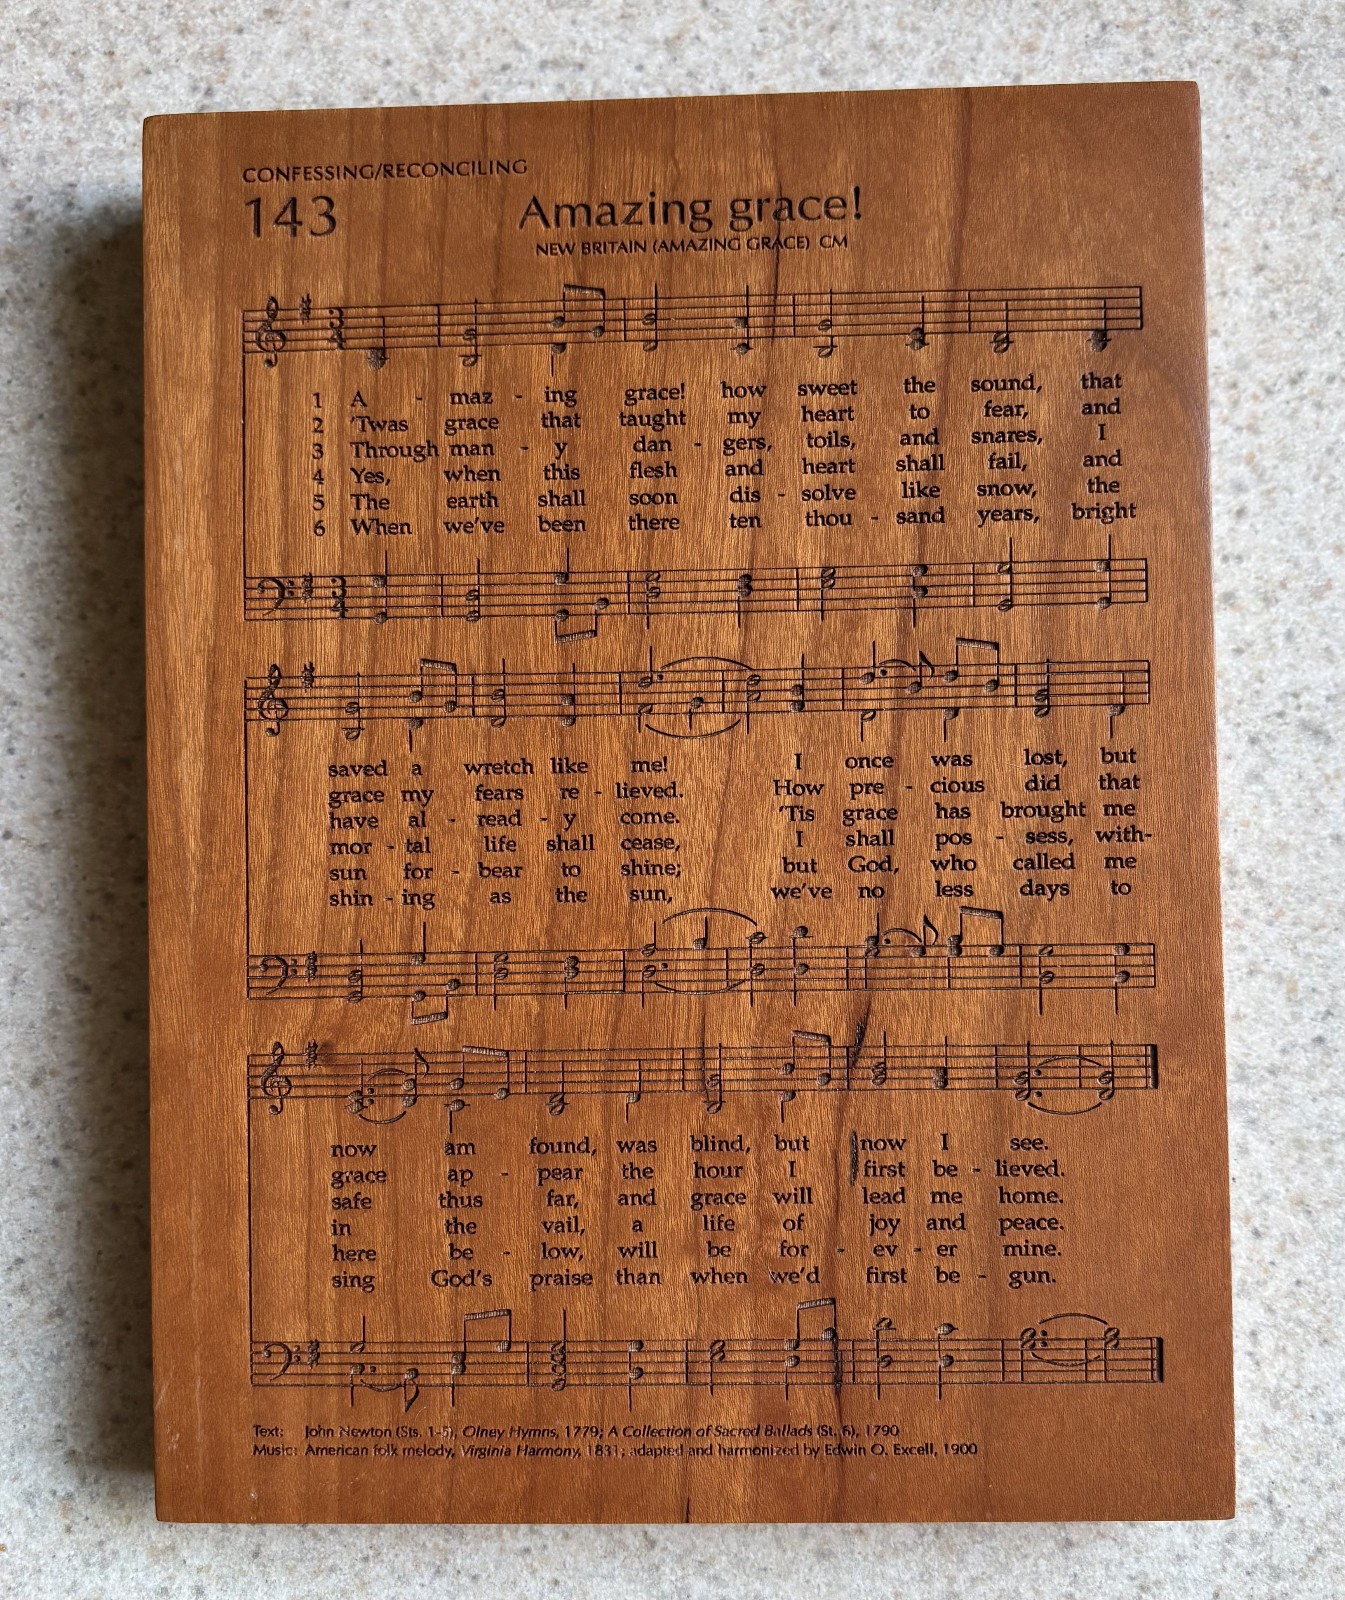 CONFESSING/RECONCILING
143 Amazing grace!
NEW BRITAIN (AMAZING GRACE) CM
1 A - maz - ing grace! how sweet the sound, that
2 'Twas grace that taught my heart to fear, and
3 Through man - y dan - gers, toils, and snares, I
4 Yes, when this flesh and heart shall fail, and
5 The earth shall soon dis - solve like snow, the
6 When we've been there ten thou - sand years, bright
saved a wretch like me! I once was lost, but
grace my fears re - lieved. How pre - cious did that
have al - read - y come. 'Tis grace has brought me
mor - tal life shall cease, I shall pos - sess, with-
sun for - bear to shine; but God, who called me
shin - ing as the sun, we've no less days to
now am found, was blind, but now I see.
grace ap - pear the hour I first be - lieved.
safe thus far, and grace will lead me home.
in the vail, a life of joy and peace.
here be - low, will be for - ev - er mine.
sing God's praise than when we'd first be - gun.
Text: John Newton (Sts. 1-5), Olney Hymns, 1779; A Collection of Sacred Ballads (St. 6), 1790
Music: American folk melody, Virginia Harmony, 1831; adapted and harmonized by Edwin O. Excell, 1900